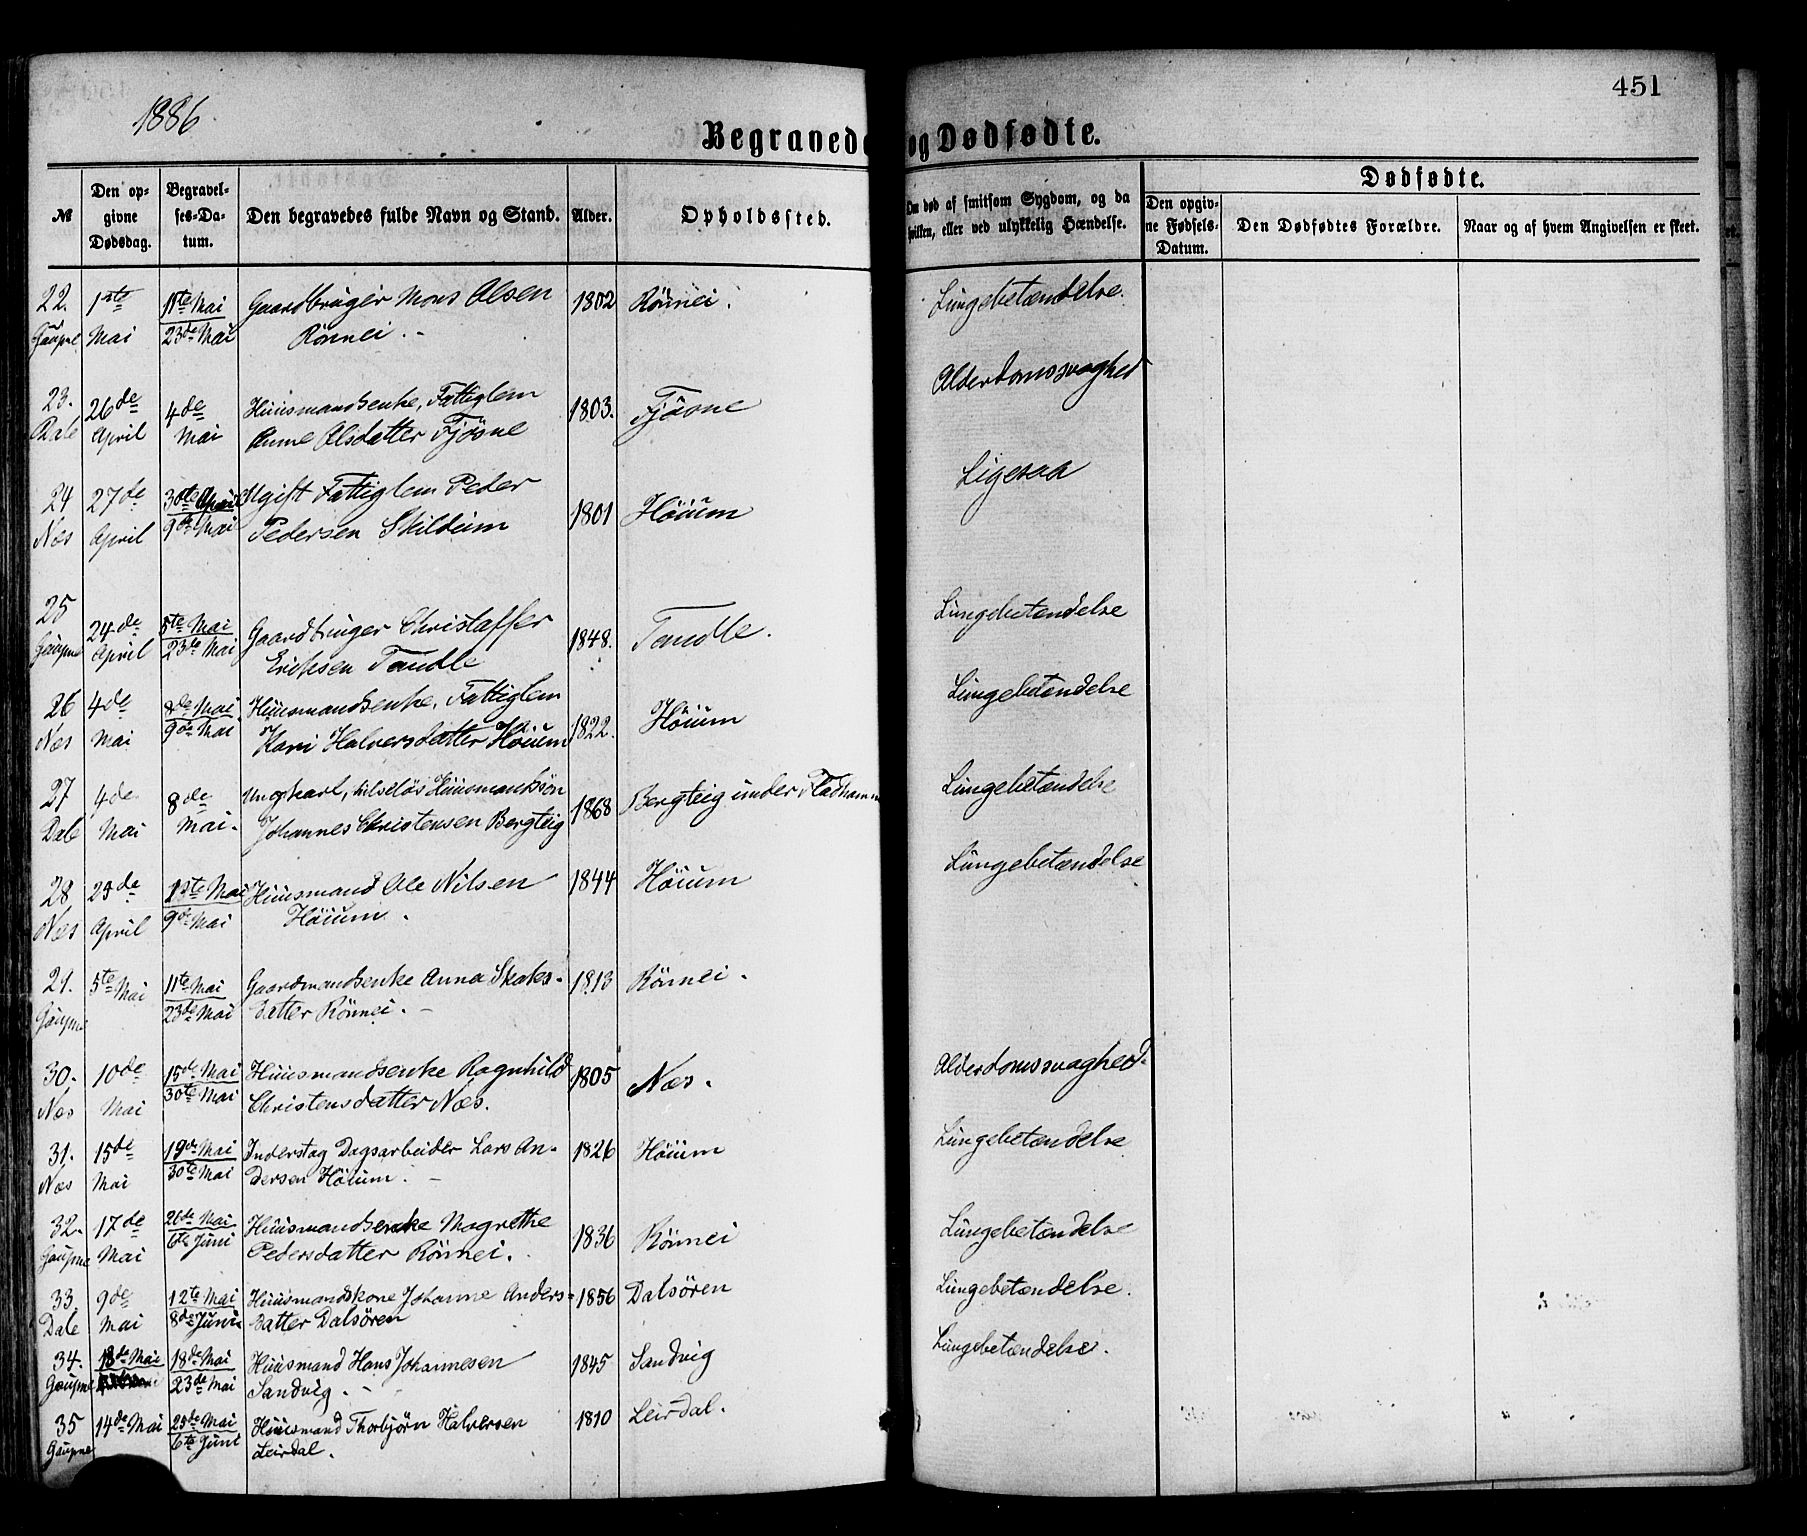 1886
451
Begravede og Dødfødte.
№
Den op-
givne
Dødsdag.
Begravel-
ses-Da-
tum.
Den begravedes fulde Navn og Stand.
Alder.
Opholdssted.
Om død af smitsom Sygdom, og da
hvilken, eller ved ulykkelig Hændelse.
Dødfødte.
Den opgiv-
ne Fødsels-
Datum.
Den Dødfødtes Forældre.
Naar og af hvem Angivelsen er skeet.
22. 1ste 11te Mai Gaardbruger Mons Olsen 1802 Rönnei. Lungebetændelse.
Gaupne Mai 23de Mai Rönnei.
23. 26de 4de Huusmandsenke, Fattiglem 1803. Fjösne Alderdomssvaghed
Dale April Mai Anne Olsdatter Fjösne
24 27de 30te April Ugift Fattiglem Peder 1801 Höium Ligesaa
Næs April 9de Mai Pedersen Skildum
25 24de 5te Mai Gaardbruger Christaffer 1848. Tandle. Lungebetændelse
Gaupne April 23de Mai Eriksen Tandle
26 4de 8de Mai Huusmandsenke, Fattiglem 1822. Höium Lungebetændelse
Næs Mai 9de Mai Kari Halversdatter Höium
27 4de 8de Ungkarl, Huusmandssön 1868 Bergteig under Fladhamm Lungebetændelse
Dale Mai Mai. Johannes Christensen Bergteig
28 25de 1ste Mai Huusmand Ole Nilsen 1844 Höium Lungebetændelse
Næs April 9de Mai Höium.
29. 5te Mai 11te Mai Gaardmandsenke Anna Skaks- 1813 Rönnei.
Gaupne 23de Mai datter Rönnei.
30. 10de 15de Mai Huusmandsenke Ragnhild 1805 Næs. Alderdomssvaghed.
Næs Mai 30te Mai Christensdatter Næs.
31. 15de 19de Mai Inderst og Dagsarbeider Lars An- 1826 Höium Lungebetændelse
Næs Mai 30te Mai dersen Höium.
32. 17de 26de Mai Huusmandsenke Magrethe 1836 Rönnei Lungebetændelse
Gaupne Mai 6te Juni Pedersdatter Rönnei.
33 9de 12te Mai Huusmandskone Johanne Anders- 1856 Dalsören Lungebetændelse.
Dale Mai 8de Juni datter Dalsören
34. 13de Mai 18de Mai Huusmand Hans Johannesen 1845 Sandvig Lungebetændelse.
Gaupne 23de Mai Sandvig.
35 14de Mai 25de Mai Huusmand Thorbjørn Halversen 1810 Leirdal.
Gaupne 6te Juni Leirdal.